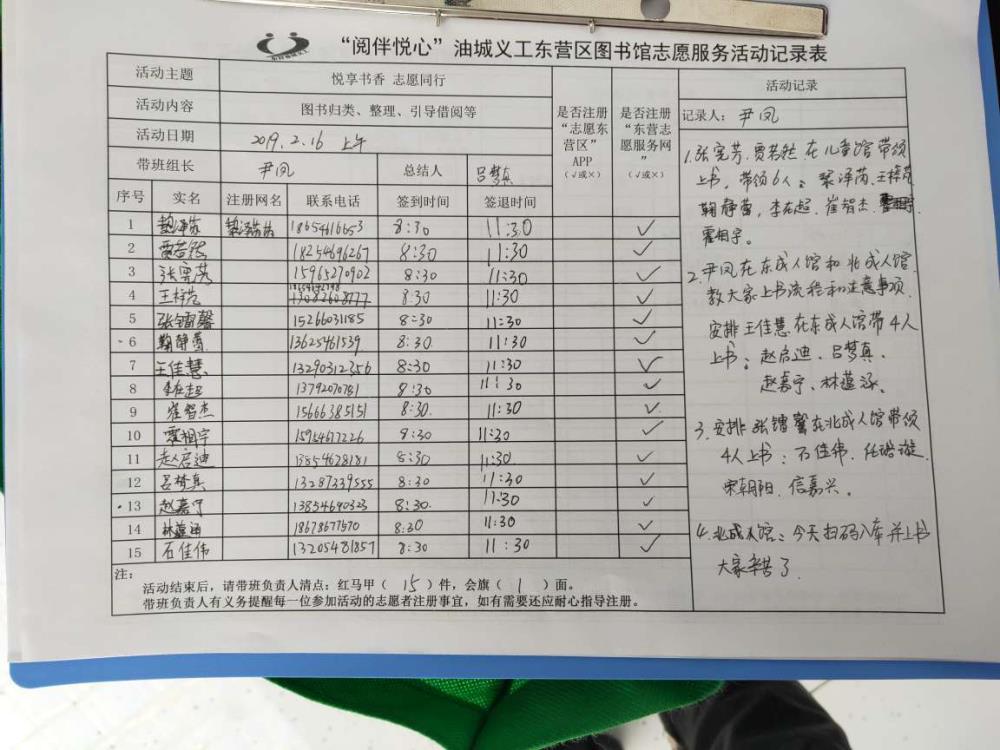 “阅伴悦心”油城义工东营区图书馆志愿服务活动记录表
活动主题 悦享书香 志愿同行
活动内容 图书归类、整理、引导借阅等
活动日期 2019.2.16 上午
带班组长 尹凤 总结人 吕梦真
是否注册“志愿东营区”APP（√或×）
是否注册“东营志愿服务网”（√或×）
序号 实名 注册网名 联系电话 签到时间 签退时间
1 18654616653 8:30 11:30 √
2 贾若然 18254696267 8:30 11:30 √
3 张宪芳 15965270902 8:30 11:30 √
4 王梓芫 8:30 11:30 √
5 张镭馨 15266031185 8:30 11:30 √
6 鞠静蕾 13625461539 8:30 11:30 √
7 王佳慧 13290312356 8:30 11:30 √
8 李在超 13792070781 8:30 11:30 √
9 崔智杰 15666385151 8:30 11:30 √
10 霍相宇 15954617226 8:30 11:30 √
11 赵启迪 13854628181 8:30 11:30 √
12 吕梦真 13287339555 8:30 11:30 √
13 赵嘉宁 13854640323 8:30 11:30 √
14 林蕴涵 18678677570 8:30 11:30 √
15 石佳伟 13205481857 8:30 11:30 √
注：
活动结束后，请带班负责人清点：红马甲（ 15 ）件，会旗（ 1 ）面。
带班负责人有义务提醒每一位参加活动的志愿者注册事宜，如有需要还应耐心指导注册。
活动记录
记录人：尹凤
1.张宪芳.贾若然在儿童馆带领
上书，带领6人：梁泽芮.王梓芫
鞠静蕾，李在超.崔智杰.
霍相宇。
2.尹凤在东成人馆和北成人馆
教大家上书流程和注意事项.
安排王佳慧在东成人馆带4人
上书：赵启迪.吕梦真.
赵嘉宁.林蕴涵。
3.安排张镭馨在北成人馆带领
4人上书：石佳伟.任璐璇.
宋朝阳.信嘉兴。
4.北成人馆：今天扫码入库并上书
大家辛苦了.